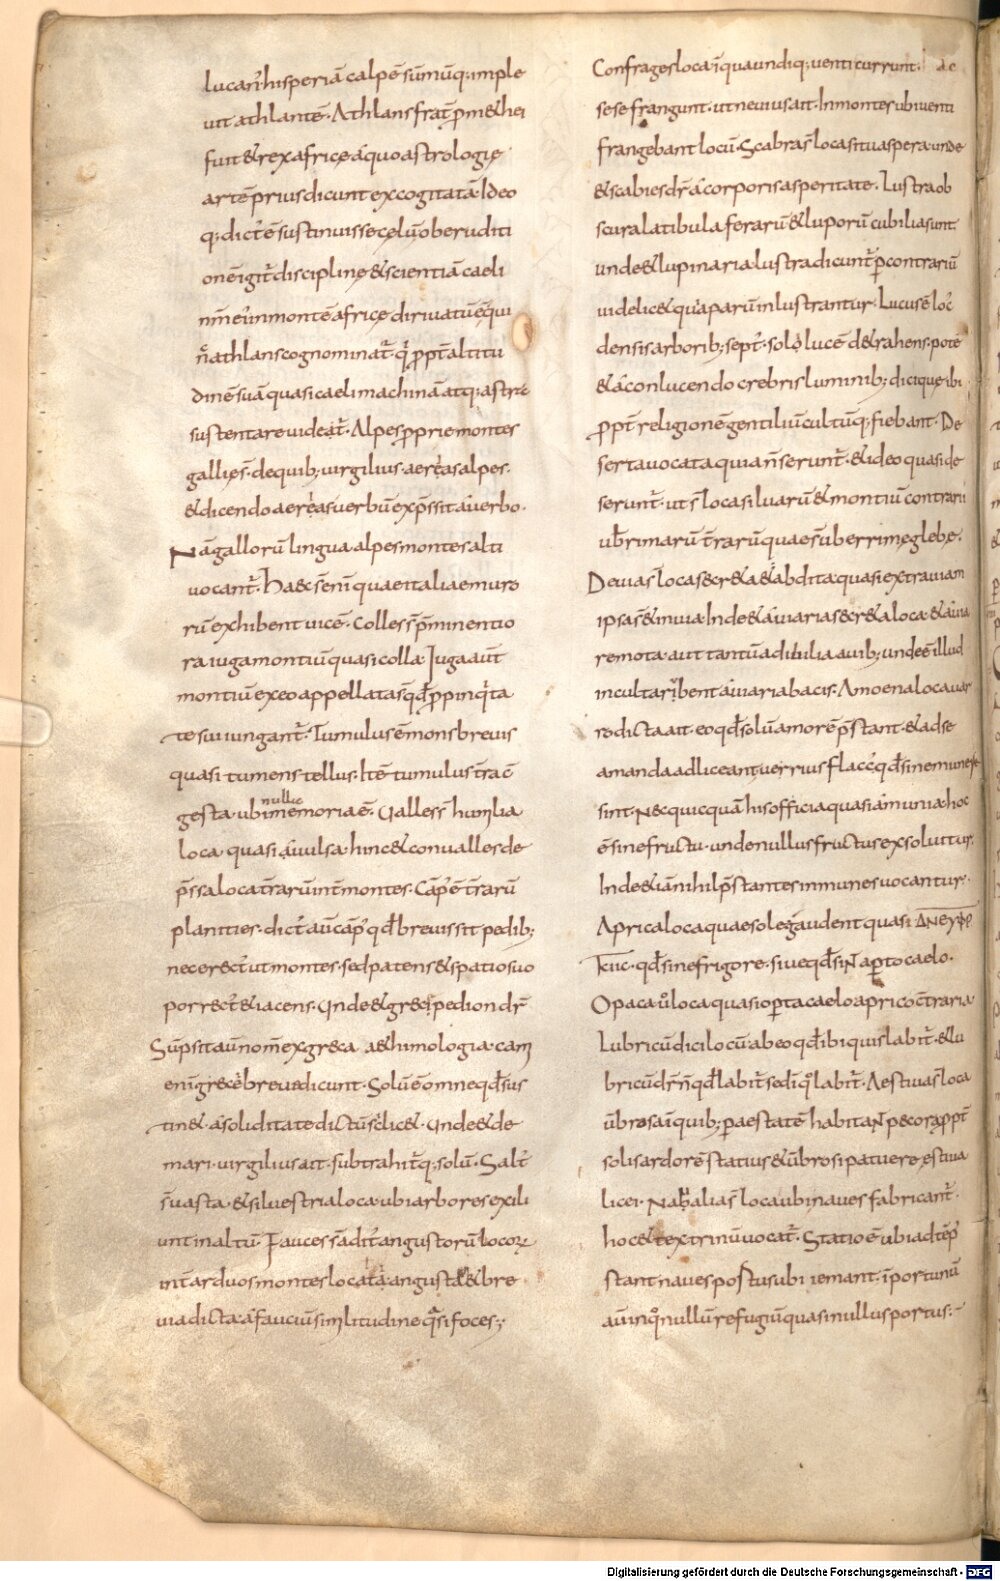 lucan' hisperiā calpē sūmūq; imple
uit athlantē. Athlans frat̄ p̄m& hei
fuit & rex africę a quo astrologię
artē prius dicunt excogitatā. Ideo
q; dict' ē sustinuisse cęlū ob eruditi
onē igit̄ disciplinę & scientiā caeli
nm̄ ei' in montē africę diriuatū ē qui
n̄c athlans cognominat̄. q̇ ꝓpt̄ altitu
dinē suā quasi caeli machinā atq; astra
sustentare uideat̄. Alpes ꝓprie montes
gallię s̄. de quib; uirgilius. aereas alpes.
& dicendo aereas uerbū exp̄ssit a uerbo.
Nā gallorū lingua alpes montes alti
uocant̄. Haec s̄ eni quae italiae muro
rū exhibent uicē. Colles s̄ p̄minentio
ra iuga montiū quasi colla. Iuga aut̄
montiū ex eo appellata s̄ qđ ꝓpinq'ta
te sui iungant̄. Tumulus ē mons breuis
quasi tumens tellus. Itē tumulus t̄ra c̄
gesta ubi nulla memoria ē. Ualles s̄ humilia
loca quasi auulsa. hinc & conualles de
p̄ssa loca t̄rarū int̄ montes. Cāp' ē t̄rarū
planities. dict' aū cāp' qđ breuis sit pedib;
nec erect' ut montes. sed patens & spatio suo
porrect' & iacens. Unde & gręci pedion dr̄
Sūpsit aū nom̄ ex greca aethimologia. cam
eni gręcę breue dicunt. Solū ē omne qđ sus
tin&. a soliditate dictū scilic&. Unde & de
mari uirgilius ait. subtrahit̄q; solū. Salt'
s̄ uasta & siluestria loca. ubi arbores exili
unt in altū. Fauces s̄ adit' angustorū locoꝝ
int̄ arduos montes loca ta angusta & bre
uia dicta a fauciū similitudine quasi foces;
Confrages loca ī qua undiq; uenti currunt. ac
sese frangunt. ut neuius ait. In montes ubi uenti
frangebant locū. Scabra s̄ loca situ aspera. unde
& scabies dr̄ a corporis asperitate. Lustra ob
scura latibula ferarū & luporū cubilia sunt.
unde & lupinaria lustra dicunt̄ ꝑ contrariū
uidelic& quia parū inlustrantur. Lucus ē loc'
densis arborib; sept'. solo lucē d&rahens. potē
& a conlucendo crebris luminib; dici que ibi
ꝓpt̄ religionē gentiliū cultūq; fiebant. De
serta uocata quia n̄ serunt̄. & ideo quasi de
serunt̄. ut s̄ loca siluarū & montiū contrari
ub̄rimarū t̄rarū quae s̄ uberrimę glebę.
Deuia s̄ loca secr&a & abdita quasi extra uiam
ipsa s̄ & inuia. Inde & auiaria secr&a loca & a uia
remota. aut tantū aditilia auib; unde ē illud
inculta rubent auiaria bacis. Amoena loca uar
ro dicta ait. eo qđ solū amorē p̄stant. & ad se
amanda adliceant. uerrius flacc' qđ sine munere
sint. nec quicquā his officia quasi ammunia. hoc
ē sine fructu. unde nullus fructus exsoluitur.
Inde & iā nihil p̄stantes inmunes uocantur.
Aprica loca quae sole gaudent quasi ΑΝΕΥΦΡ
ικιϲ. qđ sine frigore. siue qđ sint aꝑto caelo.
Opaca u̇ loca quasi oꝑta caelo aprico c̄traria.
Lubricū dici locū ab eo qđ ibi quis labit̄. & lu
bricū dr̄ n̄ qđ labit̄ sed ī q̊ labit̄. Aestiua s̄ loca
ūbrosa ī quib; ꝑ aestatē habitant pecora ꝓpt̄
solis ardorē statius & ūbrosi patuere ęstiua
licei. Naualia s̄ loca ubi naues fabricant̄.
hoc & textrinū uocat̄. Statio ē ubi ad tēp'
stant naues postus ubi iemant. īportunū
aū in q̊ nullū refugiū quasi nullus portus.